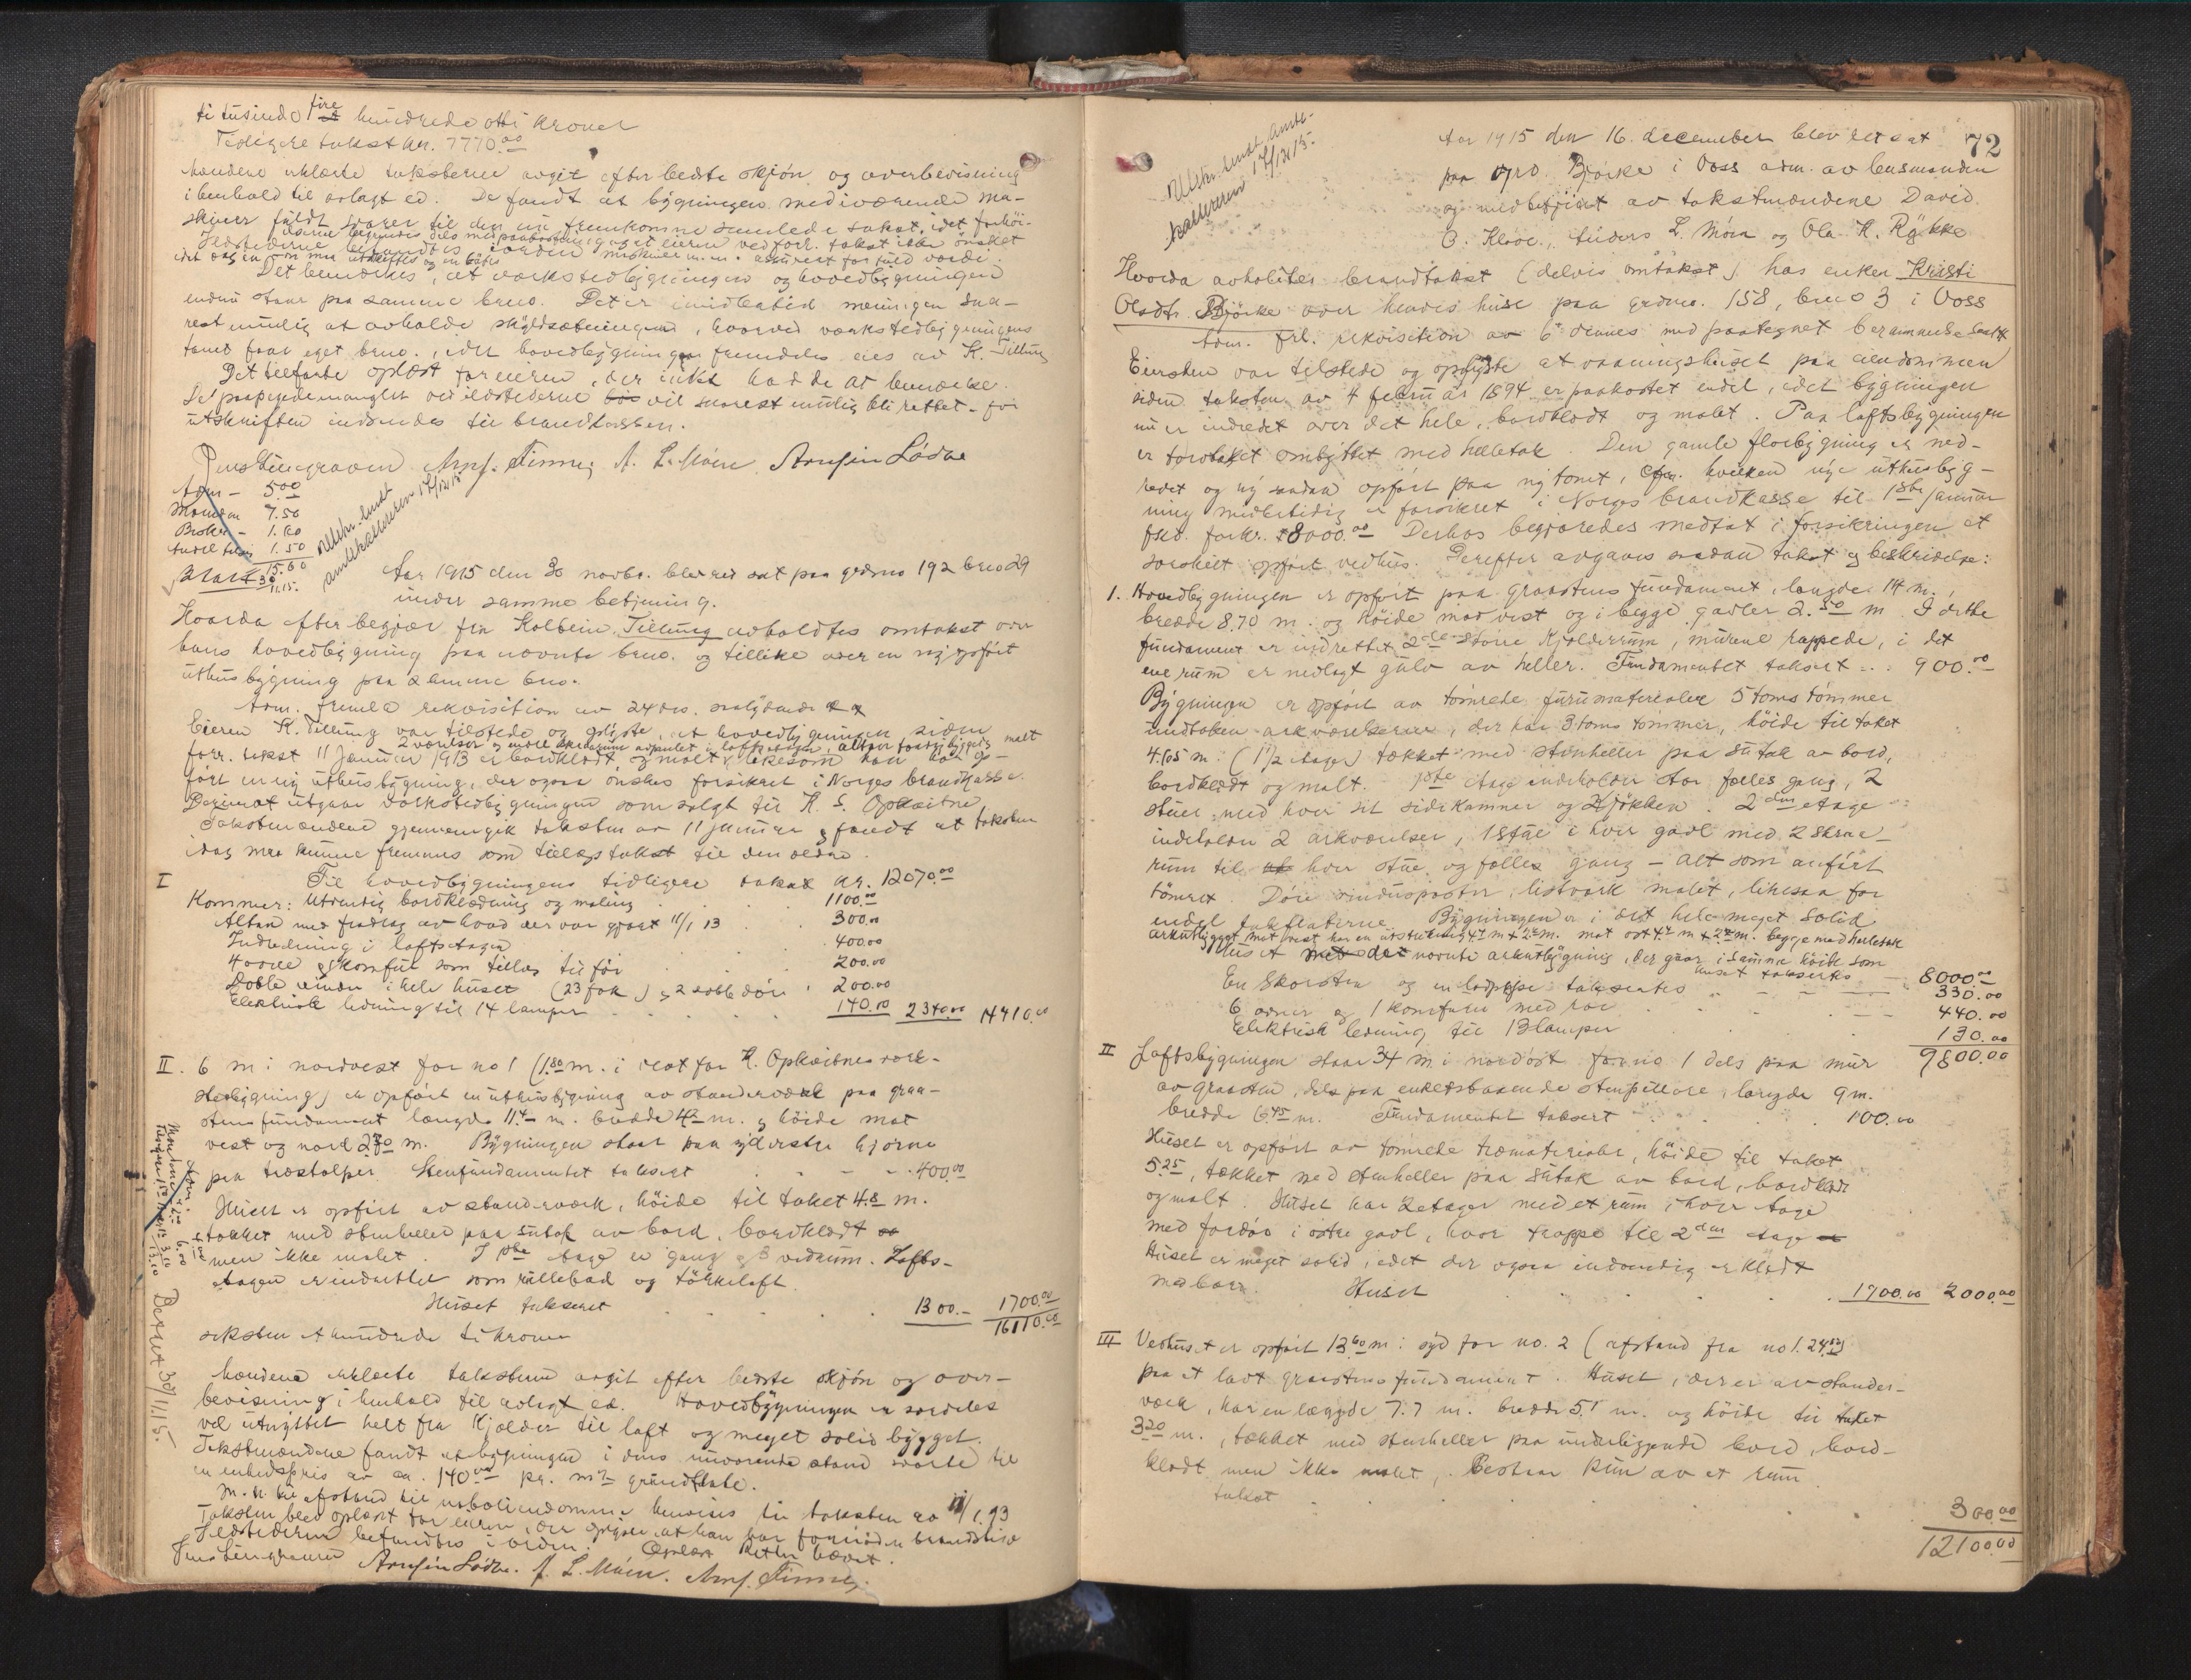 ti tusind fire hundrede otti kroner
Tidligere takst kr. 7770.00
Mændene erklærte taksterne avgit efter bedste skjøn og overbevisning
i henhold til avlagt ed. De fandt at bygningen med iværende ma-
skiner fuldt svarer til den nu fremkomne samlede takst, idet
Ildstederne befandtes i orden
Det bemerkes, at verkstedbygningen og hovedbygningen
endnu staar paa samme brno. Det er imidlertid meningen sna-
rest mulig at avholde skyldsætningen, hvorved verkstedbygningens
tomt faar eget brno., idet hovedbygningen fremdeles eies av K. Tillung
Det tilførte oplæst for eieren, der intet hadde at bemerke.
De paapegede mangler ved ildstederne vil snarest mulig bli rettet før
utskriften indsendes til brandkassen.
Jens Liengraven Arnf. Finne, A. L. Møen, Arnfin Lødve
Adm - 5.00
Mændene 7.50
1.60
1.50
15.60
Betalt 30/11.15.
Utskr. sendt
amtskasserer 17/12 15
Aar 1915 den 30 novbr. blev ret sat paa grdsno 192 brno 29
under samme betjening.
Hvorda efter begjær fra Kolbein Tillung avholdtes omtakst over
hans hovedbygning paa nævnte brno. og tillike over en nyopført
uthusbygning paa samme brno.
Adm. fremla rekvisition av 24 ds. saalydende
Eieren K. Tillung var tilstede og oplyste, at hovedbygningen siden
2 værelser og andre skraarum avpudset i loftsetagen, altan paabygget malt
forr. takst 11 januar 1913 er bordklædt og malt, likesom han har op-
ført en ny uthusbygning, der ogsaa ønskes forsikret i Norges brandkasse.
Derimot utgaar verkstedbygningen som solgt til K. S. Opheitne
Takstmændene gjennemgik taksten av 11 januar og fandt at taksten
idag maa kunne fremmes som tillægstakst til den ældre.
I Til hovedbygningens tidligere takst kr. 12070.00
Kommer: Utvendig bordklædning og maling 1100.00
Altan med fradrag av hvad der var gjort 11/1 13 300.00
Indredning i loftsetagen 400.00
4 ovne og komfur som tillæg til før 200.00
Doble vinduer i hele huset (23 fak) og 2 doble døre 200.00
Elektrisk ledning til 14 lamper 140.00 2340.00 14410.00
II. 6 m. i nordvest for no 1 (1.80 m. i vest for K. Opheitnes verk-
stedbygning) er opført en uthusbygning av standerverk paa graa-
stens fundament længde 11.4 m. bredde 4.2 m. og høide mot
vest og nord 2.70 m. Bygningen staar paa yderste hjørne
paa træstolper. Stenfundamentet taksert 400.00
Huset er opført av standerverk, høide til taket 4.8 m.
tækket med stenheller paa sutak av bord, bordklædt
men ikke malet. I 1ste etage er gang og 3 vedrum. Lofts-
etagen er indrettet som rullebod og tørkeloft.
Huset takseret 1300.- 1700.00
16110.00
seksten et hundrede ti kroner
Mændene erklærte taksterne avgit efter bedste skjøn og over-
bevisning i henhold til avlagt ed. Hovedbygningen er særdeles
vel utnyttet helt fra kjelder til loft og meget solid bygget.
Takstmændene fandt at bygningen i dens nuværende stand svarte til
en enhedspris av ca. 140.00 pr. m2 grundflate.
M. h. til afstand til naboeiendomme henvises til taksten av 11/1 13
Taksten blev oplæst for eieren, der
Ildstederne befandtes i orden. Oplæst Retten hævet.
Jens Liengraven Arnfin Lødve. A. L. Møen. Arnf. Finne,
Betalt 30/11.15.
72
Utskr. sendt amts-
kasserer 17/12 15.
Aar 1915 den 16. december blev ret sat
paa grd. Bjørke i Voss adm. av lensmanden
og medbetjent av takstmændene David
O. Kløve, Anders L. Møen og Ola K. Røkke
Hvorda avholdtes brandtakst (delvis omtakst) hos enken Kristi
Olsdtr. Bjørke over hendes huse paa grdno. 158, brno 3 i Voss
Adm. frl. rekvisition av 6 dennes med paategnet berammelse saal.
Eiersken var tilstede og oplyste at vaaningshuset paa eiendommen
siden taksten av 4 februar 1894 er paakostet endel, idet bygningen
nu er indredet over det hele, bordklædt og malet. Paa loftsbygningen
er torvtaket ombyttet med helletak. Den gamle florbygning er ned-
revet og ny saadan opført paa ny tomt, hvilken nye uthusbyg-
ning midlertidig er forsikret i Norges brandkasse til 1ste januar
for kr. 8000.00 Derhos begjæredes medtat i forsikringen et
særskilt opført vedhus. Derefter avgaves saadan takst og beskrivelse:
1. Hovedbygningen er opført paa graastens fundament, længde 14 m.,
bredde 8.70 m. og høide mot vest og i begge gavler 2.50 m. I dette
fundament er indrettet 2de større kjelderrum, murene rappede, i det
ene rum er nedlagt gulv av heller. Fundamentet taksert 900.00
Bygningen er opført av tømrede furumaterialer 5 toms tømmer
undtaken arkværelserne, der har 3 toms tømmer, høide til taket
4.65 m. (1 1/2 etage) tækket med stenheller paa sutak av bord,
bordklædt og malt. 1ste etage indeholder stor fælles gang, 2
stuer med hver sit sidekammer og kjøkken. 2den etage
indeholder 2 arkværelser, 1 stue i hver gavl med 2 skraa-
rum til hver stue og fælles gang - alt som anført
tømret. Døre vinduesposter, listverk malet, likesaa for
endel takflaterne. Bygningen er i det hele meget solid
arkutbygget mot vest har en utstrækning 4.4 m + 2. m. mot øst 4. m + 2. m. begge med helletak
Huset nævnte arkutbygning, der gaar i samme høide som
huset takseres 8000.00
En skorsten og en takseres 330.00
6 ovner og 1 komfur med rør 440.00
Elektrisk ledning til 13 lamper 130.00
9800.00
II Loftsbygningen staar 34 m. i nordøst for no 1 dels paa mur
av graasten, dels paa enkeltstaaende stenpillare, længde 9 m.
bredde 6.45 m. Fundamentet taksert 100.00
Huset er opført av tømrede træmaterialer, høide til taket
5.25, tækket med stenheller paa sutak av bord, bordklædt
og malt. Huset har 2 etager med et rum i hver etage
med fordør i østre gavl, hvor trappe til 2den etage
Huset er meget solid, idet der ogsaa indvendig er klædt
med bord. Huset 1900.00 2000.00
III Vedhuset er opført 13.60 m. syd for no. 2 (afstand fra no 1. 24.
paa et lavt graastens fundament. Huset, der er av stander-
verk, har en længde 7.7 m. bredde 5.1 m. og høide til taket
3.20 m., tækket med stenheller paa underliggende bord, bord-
klædt, men ikke malet. Bestaar kun av et rum
takst 300.00
12100.00